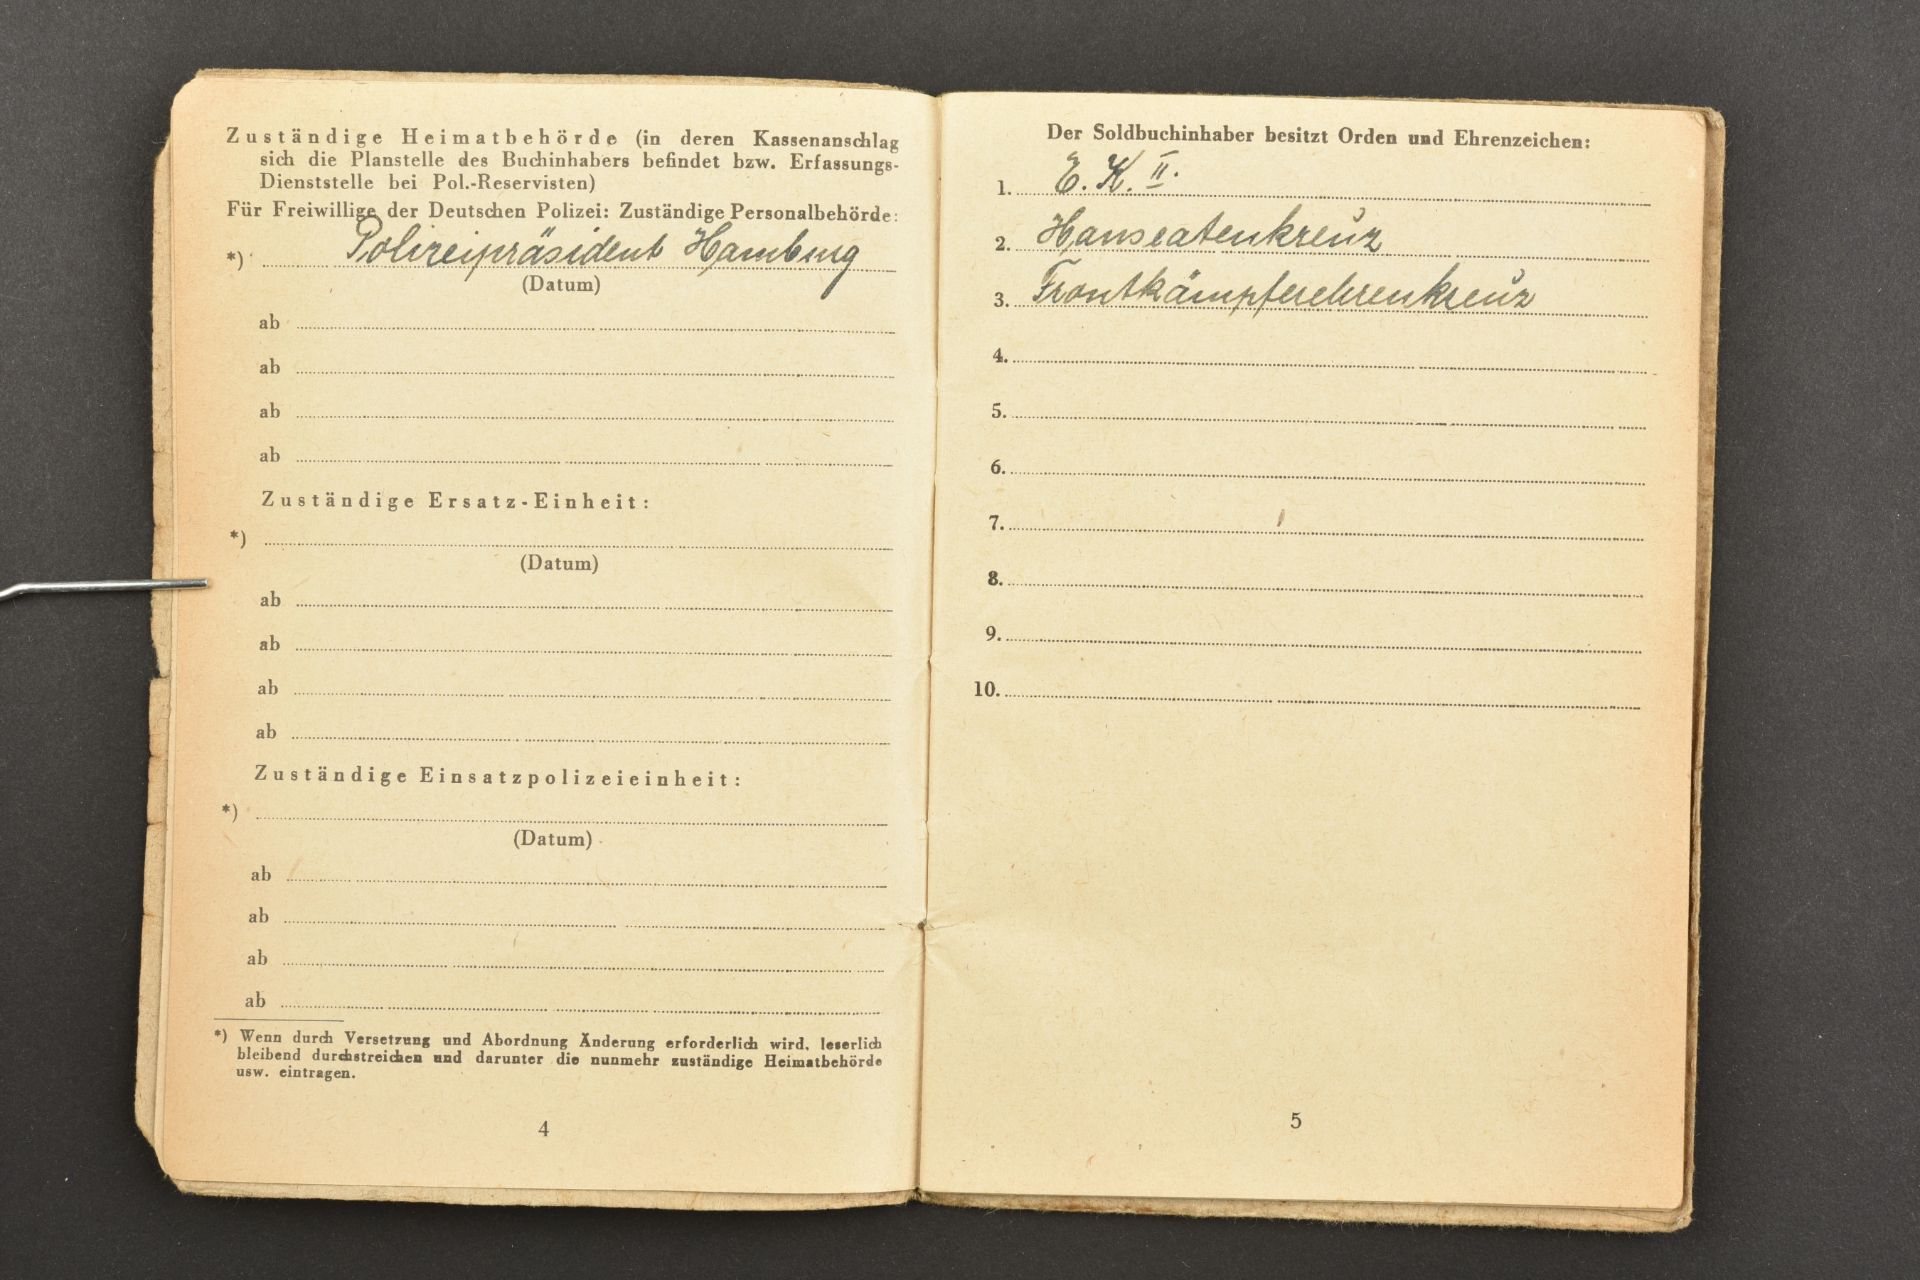 Zuständige Heimatbehörde (in deren Kassenanschlag
sich die Planstelle des Buchinhabers befindet bzw. Erfassungs-
Dienststelle bei Pol.-Reservisten)
Für Freiwillige der Deutschen Polizei: Zuständige Personalbehörde:
*) Polizeipräsident Hamburg
(Datum)
ab
ab
ab
ab
Zuständige Ersatz-Einheit:
*)
(Datum)
ab
ab
ab
ab
Zuständige Einsatzpolizeieinheit:
*)
(Datum)
ab
ab
ab
ab
*) Wenn durch Versetzung und Abordnung Änderung erforderlich wird, leserlich
bleibend durchstreichen und darunter die nunmehr zuständige Heimatbehörde
usw. eintragen.
4
Der Soldbuchinhaber besitzt Orden und Ehrenzeichen:
1. E. K. II.
2. Hanseatenkreuz
3. Frontkämpferehrenkreuz
4.
5.
6.
7.
8.
9.
10.
5